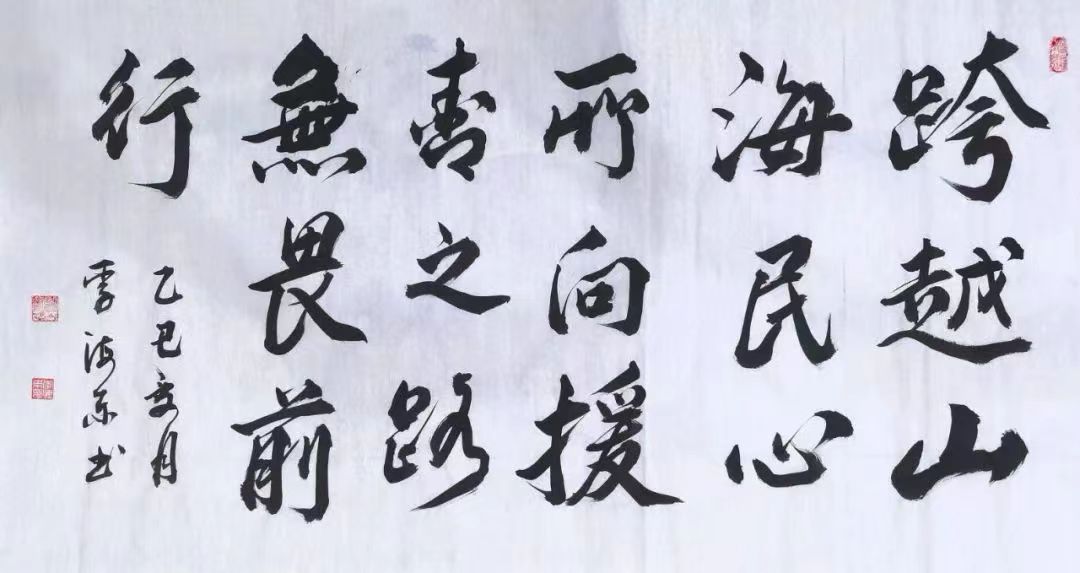 跨越山
海民心
所向援
青之路
無畏前
行
乙巳月
海东书